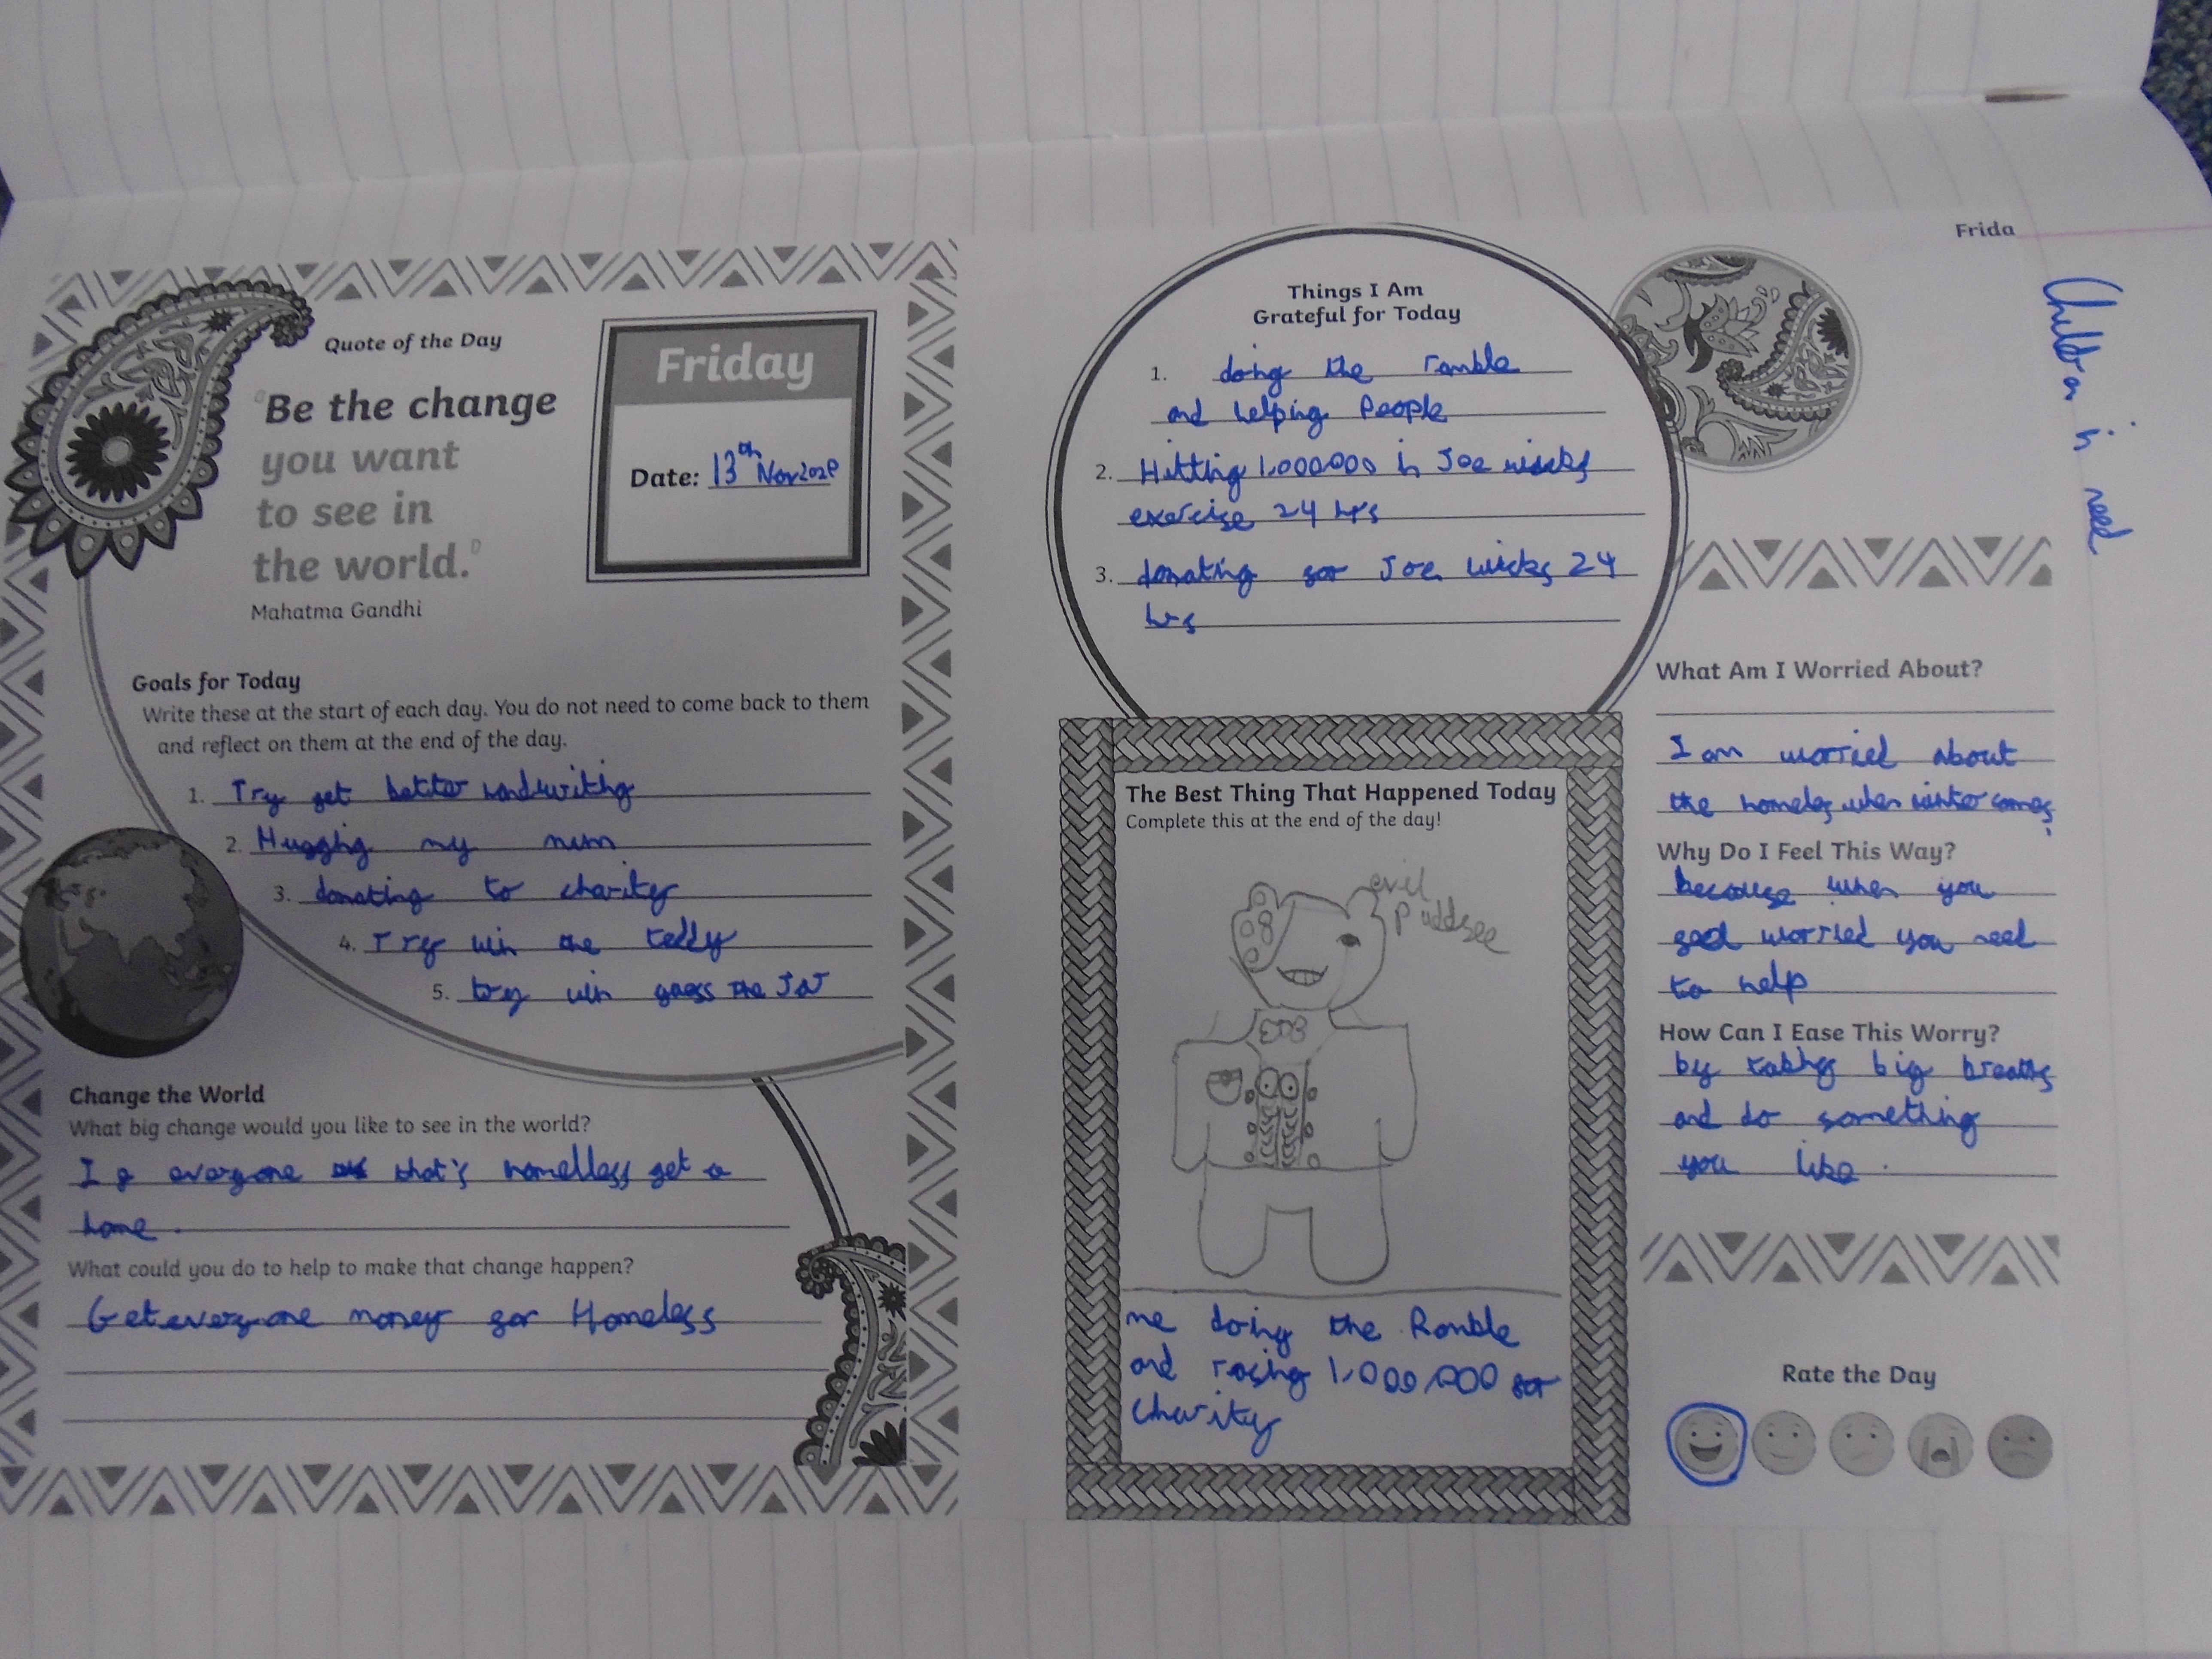 Quote of the Day
"Be the change
you want
to see in
the world."
Mahatma Gandhi
Friday
Date: 13th Nov 2020
Goals for Today
Write these at the start of each day. You do not need to come back to them
and reflect on them at the end of the day.
1. Try get better handwriting
2. Hugging my mum
3. donating to charity
4. Try win the teddy
5. try win guess the Jar
Change the World
What big change would you like to see in the world?
I everyone that's homelless get a
home.
What could you do to help to make that change happen?
Get everyone money for Homeless
Things I Am
Grateful for Today
1. doing the ramble
and helping People
2. Hitting 1,000000 in Joe wicks
exercise 24 hrs
3. donating for Joe wicks 24
hrs
The Best Thing That Happened Today
Complete this at the end of the day!
evil
Puddsee
me doing the Ramble
and rasing 1,000,000 for
charity
Frida
Children in need
What Am I Worried About?
I am worried about
the homeles when winter comes
Why Do I Feel This Way?
because when you
worried you need
to help
How Can I Ease This Worry?
by big breaths
and do something
you like.
Rate the Day